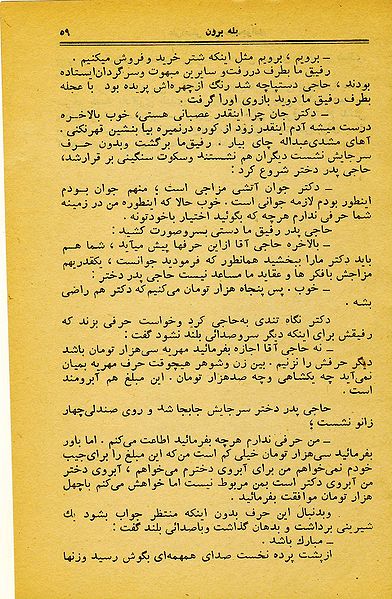 بله برون
۵۹
ـ برویم ، برویم مثل اینکه شتر خرید و فروش میکنیم .
رفیق ما بطرف در رفت و سایرین مبهوت و سرگردان ایستاده
بودند ، حاجی دستپاچه شد رنگ از چهره‌اش پریده بود با عجله
بطرف رفیق ما دوید بازوی اورا گرفت .
ـ دکتر جان چرا اینقدر عصبانی هستی، خوب بالاخره
درست میشه آدم اینقدر زود از کوره در نمیره بیا بنشین قهر نکنی .
آهای مشدی عبداله چای بیار . رفیق ما برگشت و بدون حرف
سر جایش نشست دیگران هم نشستند و سکوت سنگینی بر قرار شد،
حاجی پدر دختر شروع کرد :
ـ دکتر جوان آتشی مزاجی است ؛ منهم جوان بودم
اینطور بودم لازمه جوانی است . خوب حالا که اینطوره من در زمینه
شما حرفی ندارم هرچه که بگوئید اختیار با خودتونه .
حاجی پدر رفیق ما دستی بسر و صورت کشید :
ـ بالاخره حاجی آقا از این حرفها پیش میآید ، شما هم
باید دکتر مارا ببخشید همانطور که فرمودید جوانست ، یکقدریهم
مزاجش با فکر ها و عقاید ما مساعد نیست حاجی پدر دختر :
ـ خوب . پس پنجاه هزار تومان می‌کنیم که دکتر هم راضی
بشه .
دکتر نگاه تندی به حاجی کرد و خواست حرفی بزند که
رفیقش برای اینکه دیگر سر و صدائی بلند نشود گفت :
ـ نه حاجی آقا اجازه بفرمائید مهریه سی‌هزار تومان باشد
دیگر حرفش را نزنیم . بین زن و شوهر هیچوقت حرف مهریه بمیان
نمی‌آید چه یکشاهی وچه صدهزار تومان . این مبلغ هم آبرومند
است .
حاجی پدر دختر سر جایش جابجا شد و روی صندلی چهار
زانو نشست ؛
ـ من حرفی ندارم هرچه بفرمائید اطاعت می‌کنم . اما باور
بفرمائید سی‌هزار تومان خیلی کم است من که این مبلغ را برای جیب
خودم نمی‌خواهم من برای آبروی دخترم می‌خواهم ، آبروی دختر
من آبروی دکتر است بمن مربوط نیست اما خواهش می‌کنم با چهل
هزار تومان موافقت بفرمائید .
و بدنبال این حرف بدون اینکه منتظر جواب بشود یك
شیرینی برداشت و بدهان گذاشت و باصدائی بلند گفت :
ـ مبارك باشد .
از پشت پرده نخست صدای همهمه‌ای بگوش رسید و زنها